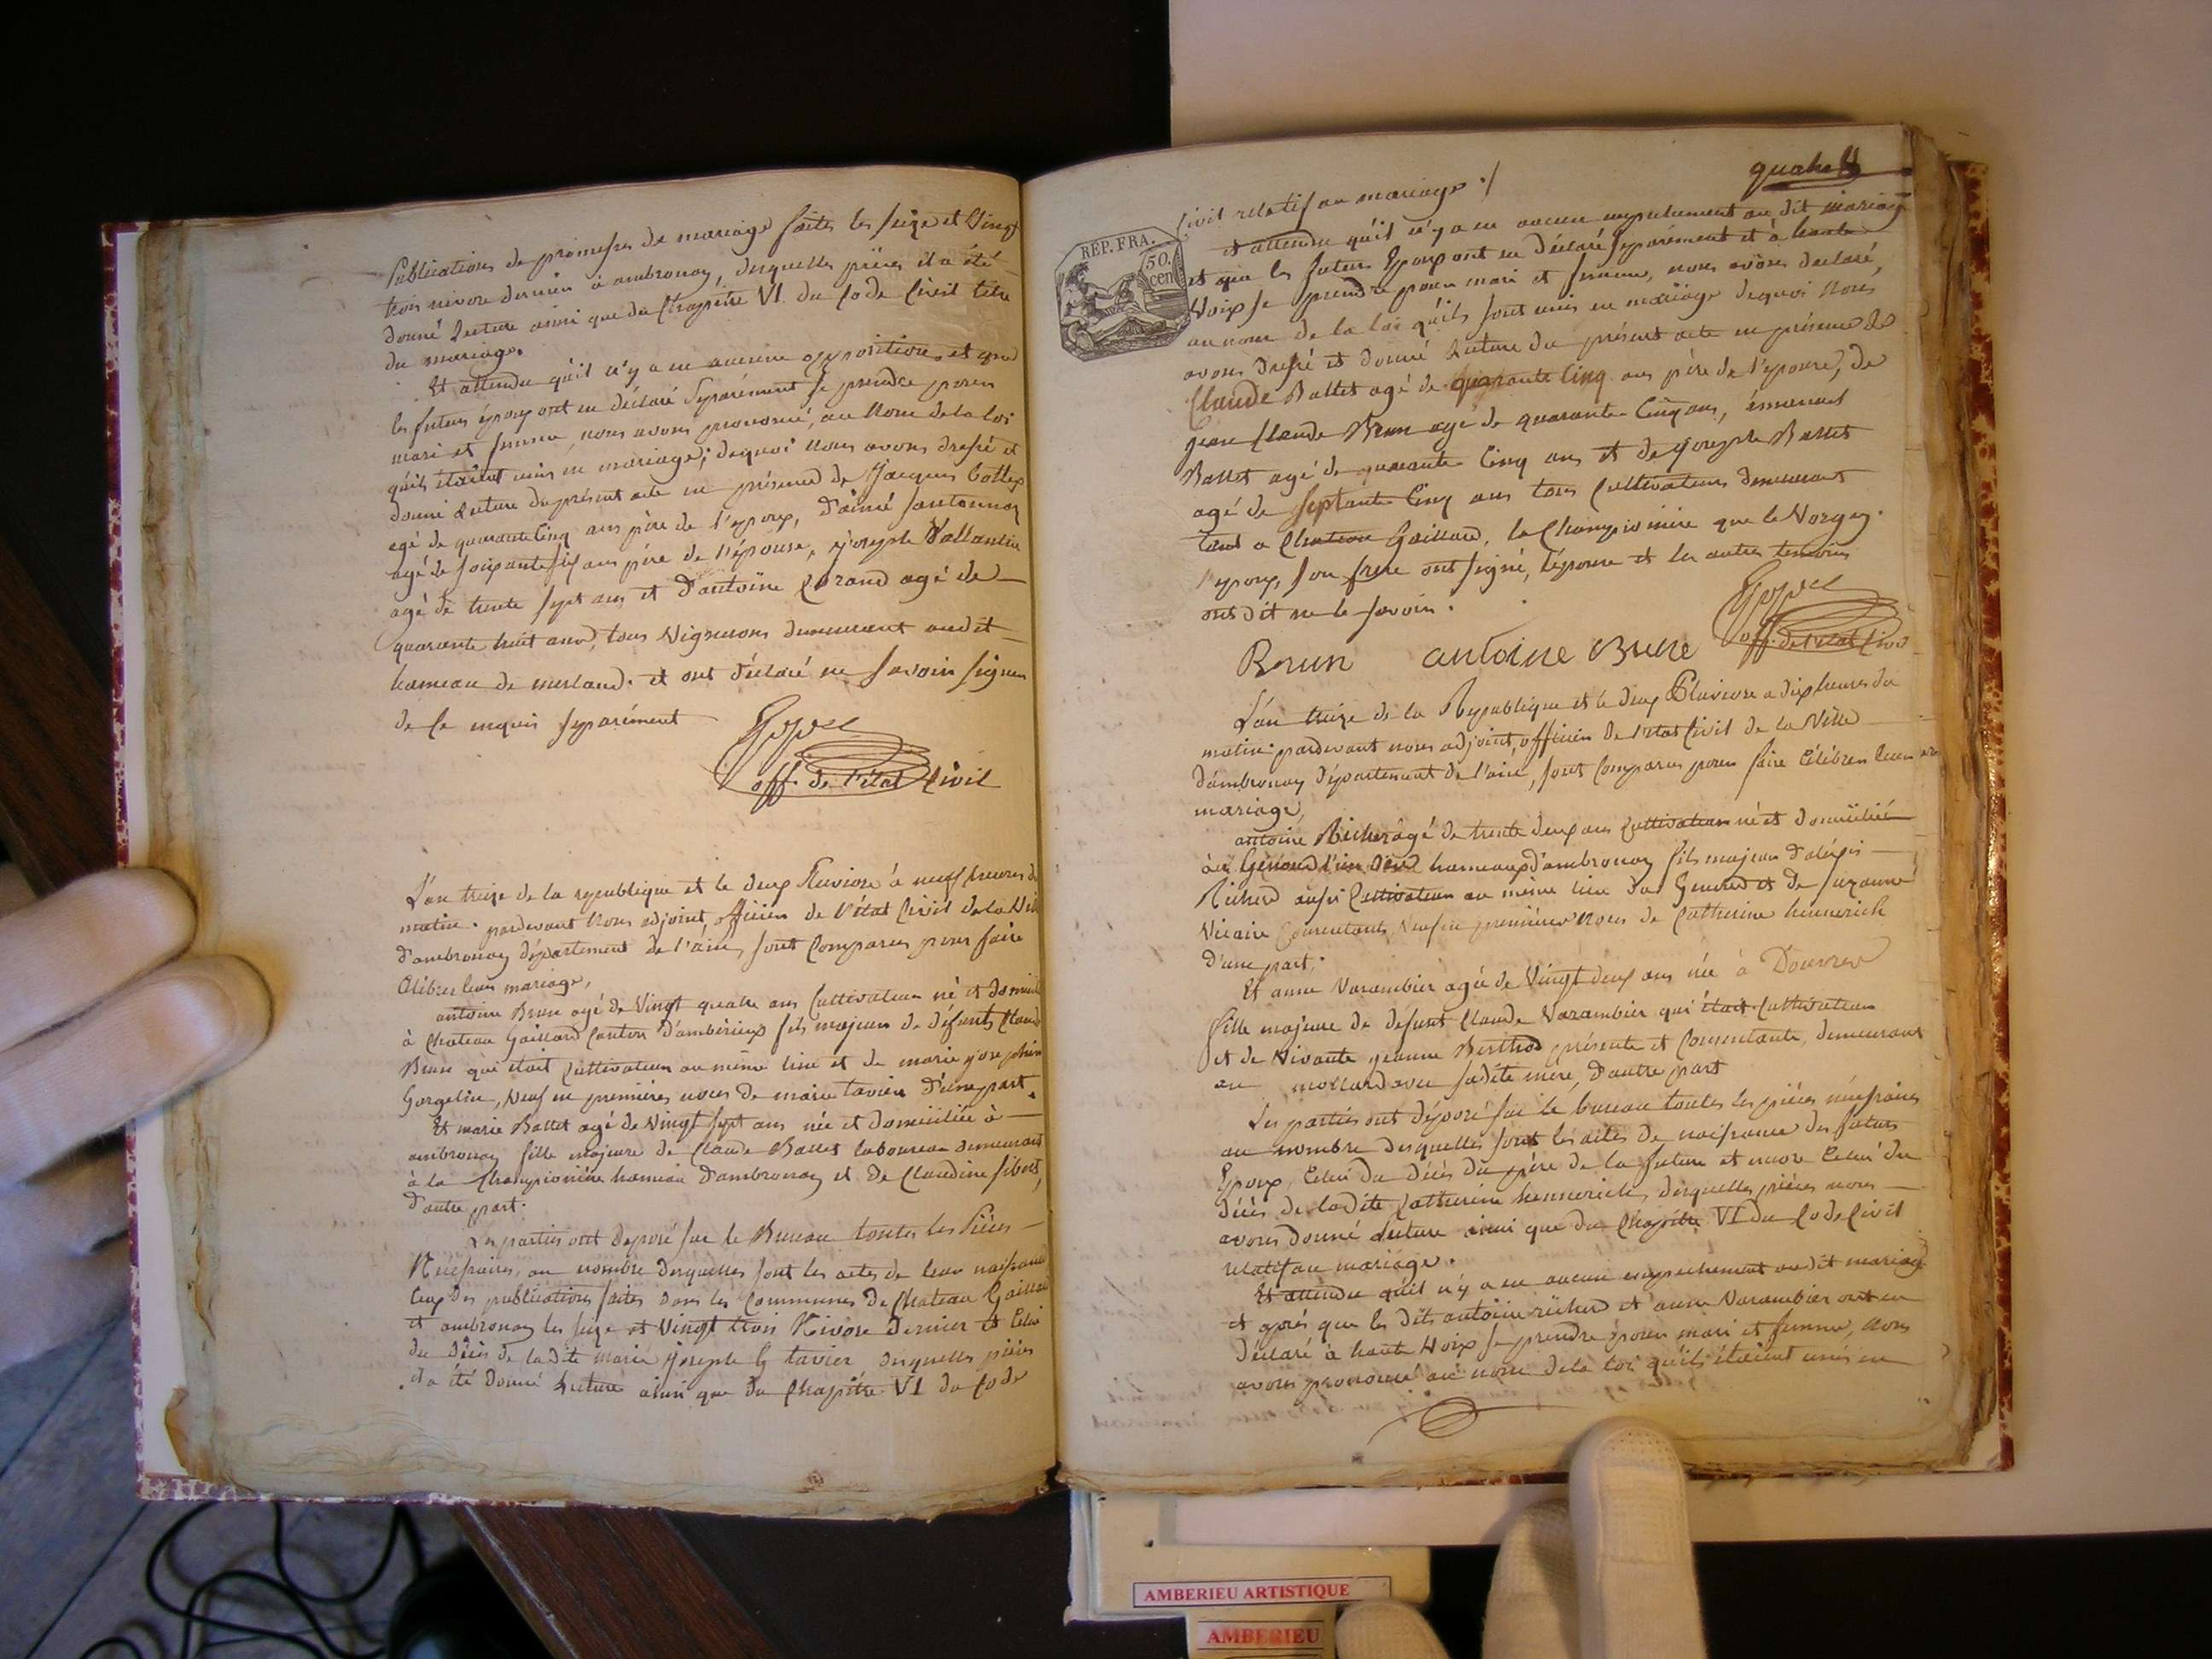 Publications de promesses de mariage faites les seize et Vingt
trois nivose dernier à ambronay, desquelles pièces il a été
donné Lecture ainsi que du Chapitre VI du Code Civil titre
du mariage.
Et attendu qu'il n'y a eu aucune opposition et que
les futurs époux ont eu déclaré Séparément se prendre pour
mari et femme, nous avons prononcé, au Nom de la loi
qu'ils étaient unis en mariage; dequoi Nous avons dressé et
donné Lecture du présent acte en présence de Jacques Cottex
agé de quarante Cinq ans père de l'epoux, d'aimé Santonnax
agé de soixante six ans père de l'épouse, joseph Vallantin
agé de trente sept ans et d'antoine Lorand agé de
quarante huit ans, tous Vignerons demeurant audit
hameau de merland. et ont déclaré ne Savoir signer
de Ce enquis séparément
off. de l'état Civil
L'an treize de la republique et le deux Pluviose à neuf heures du
matin. pardevant Nous adjoint, officier de l'état Civil de la Ville
d'ambronay département de l'ain, sont Comparus pour faire
Célébrer leur mariage,
antoine Brun agé de Vingt quatre ans Cultivateur né et domicilié
à Chateau Gaillard Canton d'ambérieux fils majeur de défunts Claude
Brun qui était Cultivateur au même lieu et de marie josephine
Gorgelin, Veuf en premières noces de marie tavier d'une part.
Et marie Ballet agé de Vingt sept ans née et domiciliée à
ambronay fille majeure de Claude Ballet laboureur demeurant
à la Championière hameau d'ambronay et de Claudine Sibert,
d'autre part.
Les parties ont déposé sur le Bureau toutes les Pièces
Nécessaires, au nombre desquelles sont les actes de leur naissance
Ceux des publications faites dans les Communes de Chateau Gaillard
et ambronay les seize et Vingt trois Nivose Dernier et Celui
du Décès de ladite marie josephe tavier desquelles pièces
il a été donné Lecture ainsi que du Chapitre VI du Code
REP. FRA.
50.
cen
Civil relatif au mariage ./
et attendu qu'il n'y a eu aucun empechement au dit mariage
et que les futurs Epoux ont eu déclaré Séparément et à haute
Voix se prendre pour mari et femme, nous avons declaré,
au nom de la loi qu'ils sont unis en mariage dequoi Nous
avons dressé et donné Lecture du présent acte en présence de
Claude Ballet agé de quarante Cinq ans père de l'epouse, de
jean Claude Brun agé de quarante Cinq ans,
Ballet agé de quarante Cinq ans et de joseph Ballet
agé de septante Cinq ans tous Cultivateurs demeurant
tant a Chateau Gaillard, la Championière que le Vorgey.
l'epoux, son frere ont signé, l'épouse et les autres temoins
ont dit ne le savoir.
off. de l'état Civil
Brun antoine Brune
L'an treize de la Republique et le deux Pluviose a dix heures du
matin pardevant nous adjoint, officier de l'état Civil de la Ville
d'ambronay département de l'ain, sont Comparus pour faire Célébrer leur
mariage,
antoine Richerd âgé de trente deux ans Cultivateur né et domicilié
au Genoud hameau d'ambronay fils majeur d'alexis
Richerd aussi Cultivateur au même lieu du Genoud et de Suzanne
Vicaire Consentants, Veuf en premières Noces de Catherine hennerick
d'une part.
Et anne Varambier agée de Vingt deux ans née à Douvres
fille majeure de defunt Claude Varambier qui était Cultivateur
et de Vivante jeanne Berthod présente et Consentante, demeurant
au mollard avec sadite mère, d'autre part
Les parties ont déposé sur le bureau toutes les pièces nécessaires
au nombre desquelles sont les actes de naissance des futurs
Epoux, Celui du Décès du père de la future et encore Celui du
Décès de ladite Catherine hennerick, desquelles pièces nous
avons donné Lecture ainsi que du Chapitre VI du Code Civil
relatif au mariage.
Et attendu qu'il n'y a eu aucun empechement audit mariage
et après que les dits antoine richerd et anne Varambier ont eu
déclaré à haute Voix se prendre pour mari et femme, Nous
avons prononcé au nom de la loi qu'ils étaient unis en
AMBERIEU ARTISTIQUE
AMBERIEU